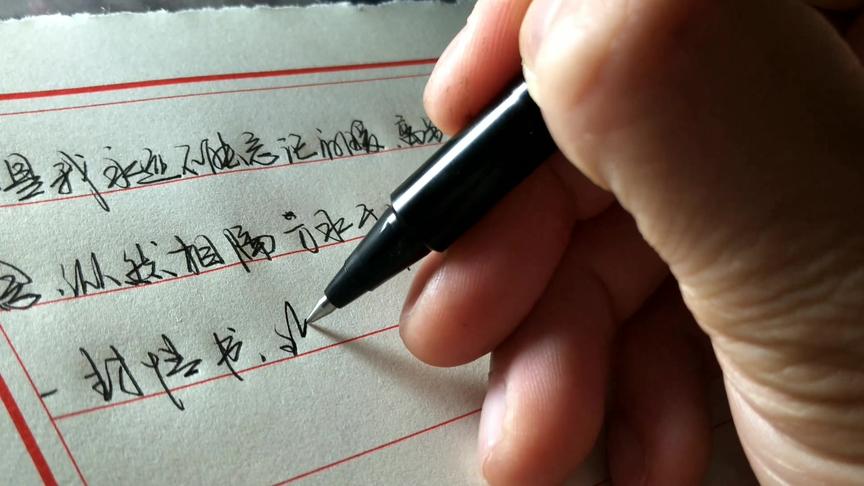 是我永远不能忘记的
纵然相隔万水千
一封情书,